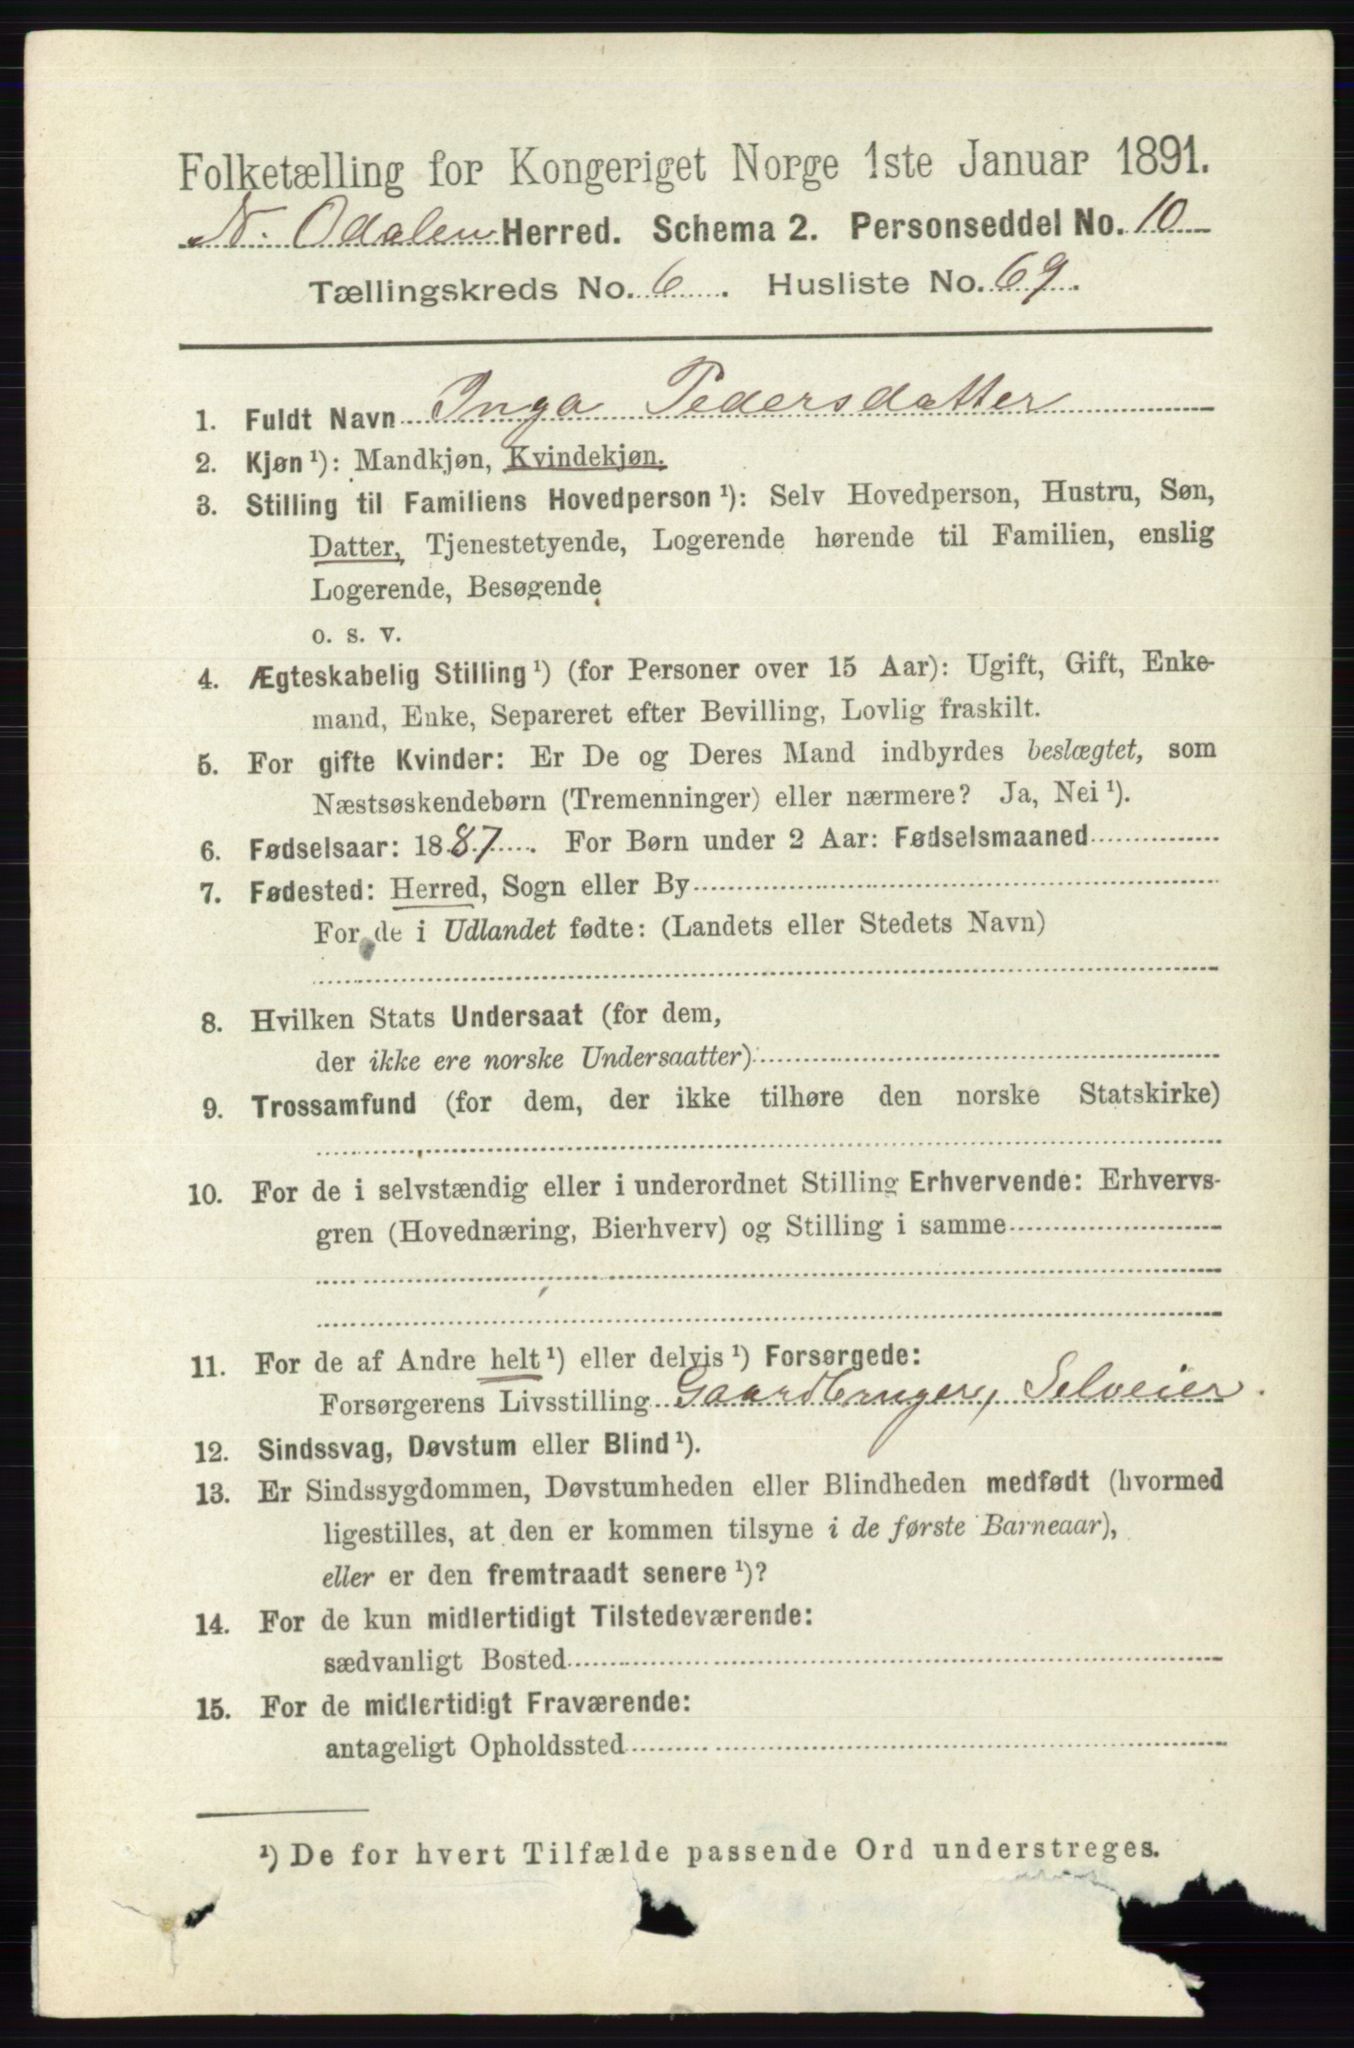 Folketælling for Kongeriget Norge 1ste Januar 1891.
N. Odalen Herred. Schema 2. Personseddel No. 10
Tællingskreds No. 6. Husliste No. 69.
1. Fuldt Navn Inga Pedersdatter
2. Kjøn ¹): Mandkjøn, Kvindekjøn.
3. Stilling til Familiens Hovedperson ¹): Selv Hovedperson, Hustru, Søn,
Datter, Tjenestetyende, Logerende hørende til Familien, enslig
Logerende, Besøgende
o. s. v.
4. Ægteskabelig Stilling ¹) (for Personer over 15 Aar): Ugift, Gift, Enke-
mand, Enke, Separeret efter Bevilling, Lovlig fraskilt.
5. For gifte Kvinder: Er De og Deres Mand indbyrdes beslægtet, som
Næstsøskendebørn (Tremenninger) eller nærmere? Ja, Nei ¹).
6. Fødselsaar: 1887. For Børn under 2 Aar: Fødselsmaaned
7. Fødested: Herred, Sogn eller By
For de i Udlandet fødte: (Landets eller Stedets Navn)
8. Hvilken Stats Undersaat (for dem,
der ikke ere norske Undersaatter)
9. Trossamfund (for dem, der ikke tilhøre den norske Statskirke)
10. For de i selvstændig eller i underordnet Stilling Erhvervende: Erhvervs-
gren (Hovednæring, Bierhverv) og Stilling i samme
11. For de af Andre helt ¹) eller delvis ¹) Forsørgede:
Forsørgerens Livsstilling Gaardbruger, Selveier.
12. Sindssvag, Døvstum eller Blind ¹).
13. Er Sindssygdommen, Døvstumheden eller Blindheden medfødt (hvormed
ligestilles, at den er kommen tilsyne i de første Barneaar),
eller er den fremtraadt senere ¹)?
14. For de kun midlertidigt Tilstedeværende:
sædvanligt Bosted
15. For de midlertidigt Fraværende:
antageligt Opholdssted
¹) De for hvert Tilfælde passende Ord understreges.